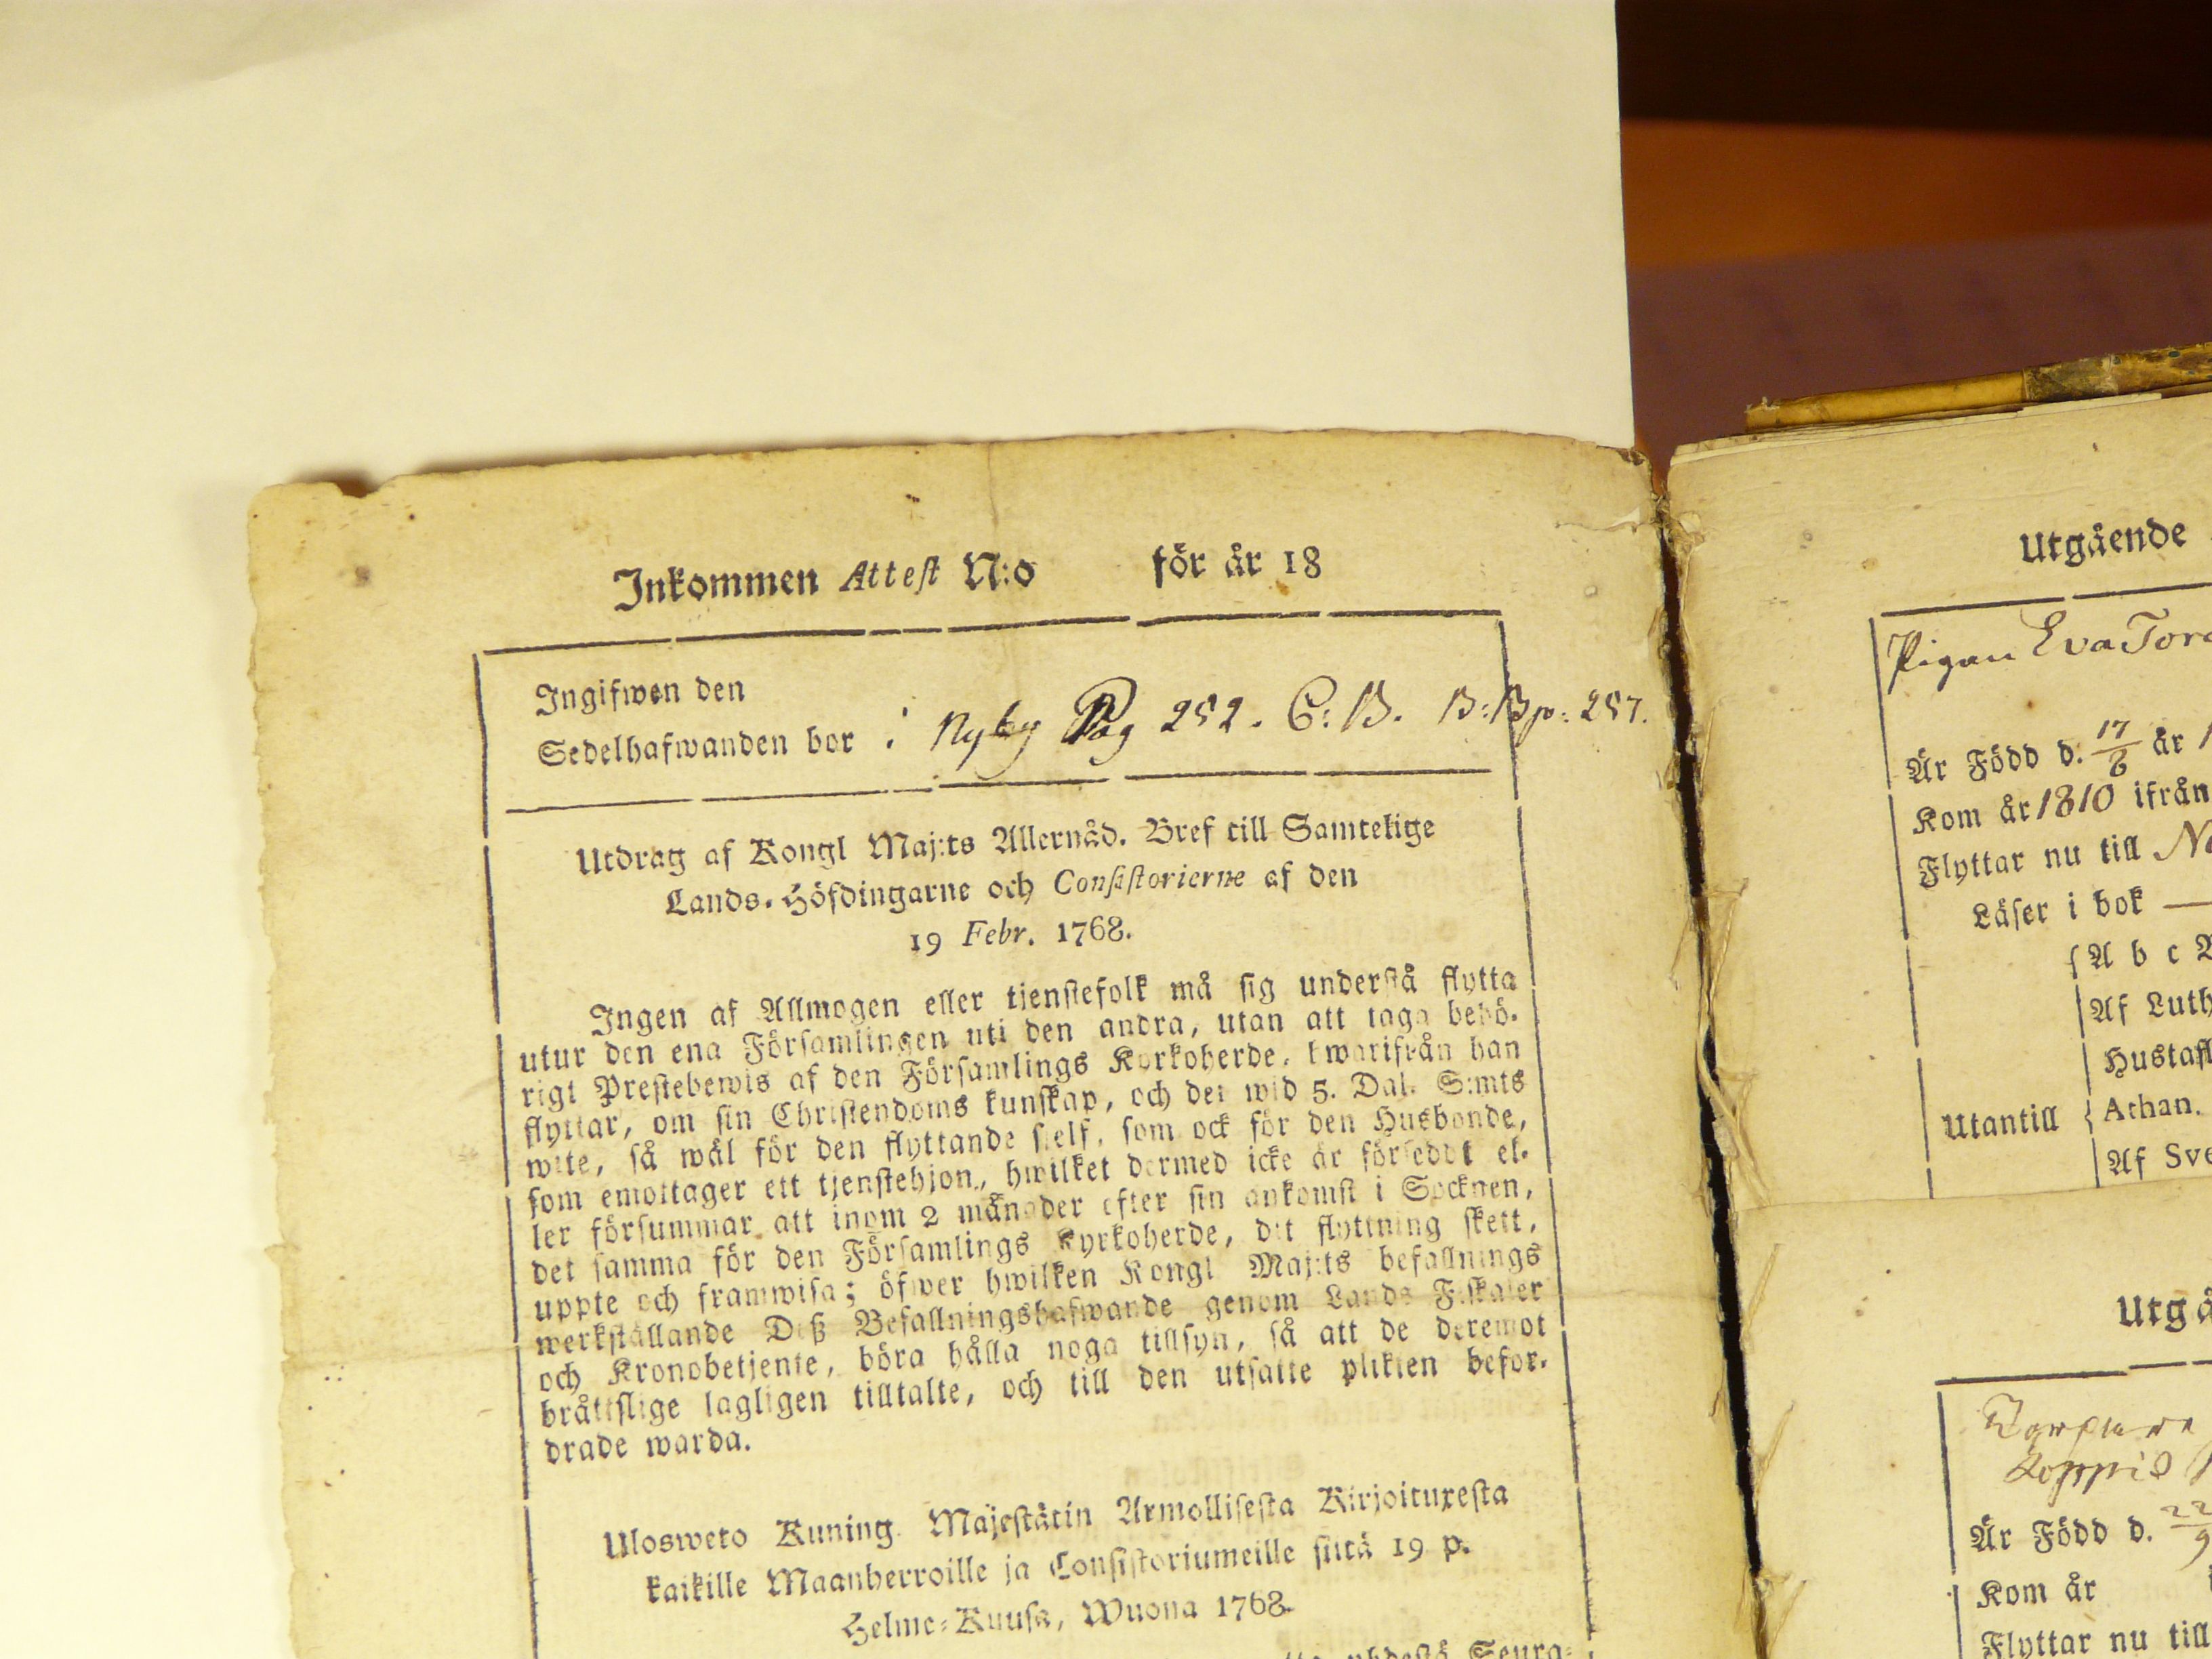 Inkommen Attest N:o för år 18
Ingifwen den
Sedelhafwanden bor i Nyby Pag 252. C:B. B:B p: 257.
Utdrag af Kongl Maj:ts Allernåd. Bref till Samtelige
Lands-Höfdingarne och Consistorierne af den
19 Febr. 1768.
Ingen af Allmogen eller tjenstefolk må sig understå flytta
utur den ena Församlingen uti den andra, utan att taga behö-
rigt Prestebewis af den Församlings Kyrkoherde, hwarifrån han
flyttar, om sin Christendoms kunskap, och det wid 5. Dal. S:mts
wite, så wäl för den flyttande sielf, som ock för den Husbonde,
som emottager ett tjenstehjon, hwilket dermed icke är förseddt el-
ler försummar att inom 2 månader efter sin ankomst i Socknen,
det samma för den Församlings Kyrkoherde, dit flyttning skett,
uppte och framwisa; öfwer hwilken Kongl Maj:ts befallnings
werkställande Deß Befallningshafwande genom Lands Fiskaler
och Kronobetjente, böra hålla noga tillsyn, så att de deremot
bråttslige lagligen tilltalte, och till den utsatte plikten befor-
drade warda.
Ulosweto Kuning. Majestätin Armollisesta Kirjoituxesta
kaikille Maanherroille ja Consistoriumeille siitä 19 p.
Helme-Kuusa, Wuona 1768.
yhdestä Seura-
Utgående
Pigan Eva
Är Född d. 17/8 år
Kom år 1810 ifrån
Flyttar nu till
Läser i bok —
A b c
Af Luth
Hustafl
Utantill { Athan.
Af Sve
Utgå
Är Född d. 22/9
Kom år
Flyttar nu till